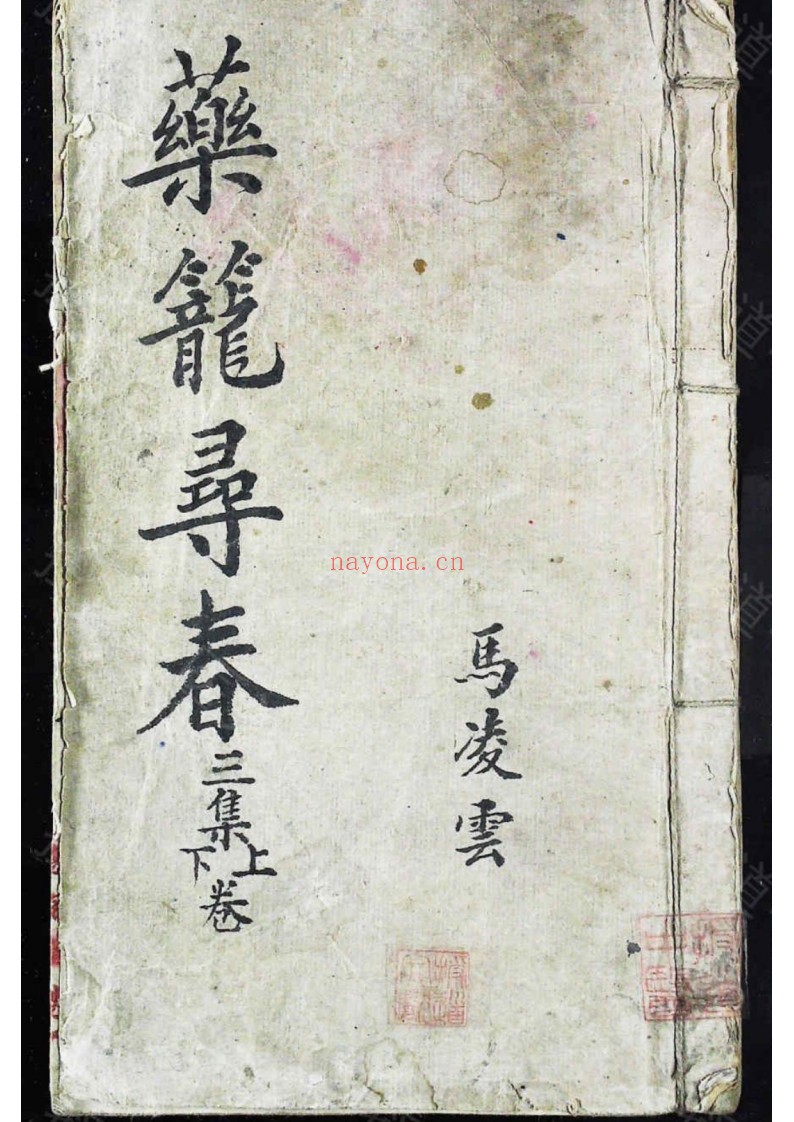 藥籠尋春
三集
上下
卷
馬凌雲
nayona.cn